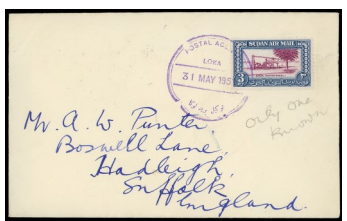 POSTAL AGENCY
LOKA
31 MAY 195
SUDAN AIR MAIL
3
only one
known
Mr. A. W. Punter,
Boswell Lane,
Hadleigh,
Suffolk
England.